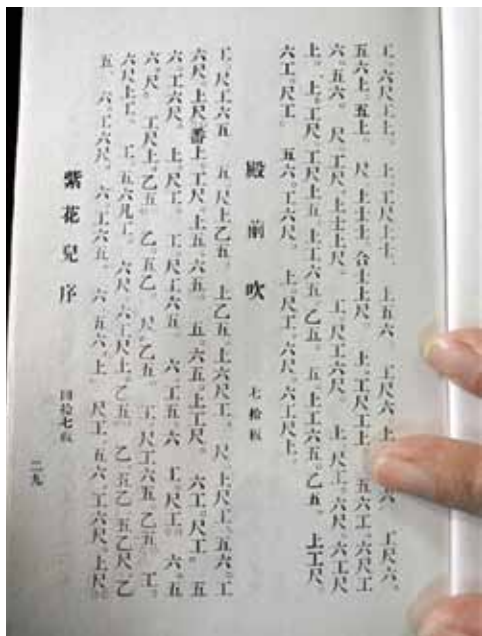 工。六尺工上。 上。工尺上士。 上五六。 工尺六 上 六 工尺六。
五六上。五上。 尺 上士上。合士上尺。 上。工尺工上 五六工。六尺工
六。五六。 尺。工尺。上士上尺。 工。尺工六尺 上 尺工。六尺。六工尺
上。上。工尺。工尺上五 上工六五 乙五。 五 上工六五。乙五。 上工尺。
六工。尺工 五六。工六尺。 上。尺工。六尺。六工尺上。
殿前吹 七拾板
工。尺工六五 五 尺上乙五。 上乙五。上六尺工。 尺 上尺工。五六。工
六尺。上尺。番上。工尺 上五。六五。 五。六五。上工尺。 六工。尺工 五
六。工六尺。 上。尺工。 工。尺工六五。 六。工五。六 工。尺工。 六。五
六。尺。 工尺上。乙五。 乙。五乙。 尺 乙五。 工。尺工六五 乙五。 工。
六尺上工。 工。五六凡工。 六尺。六工尺上。乙五。 乙。五乙 五乙尺。乙
五。 六。工六尺。 六。工六五。 六 五六。上。 尺工 五六。工六尺。上尺。
紫花兒序 四拾七板
二九